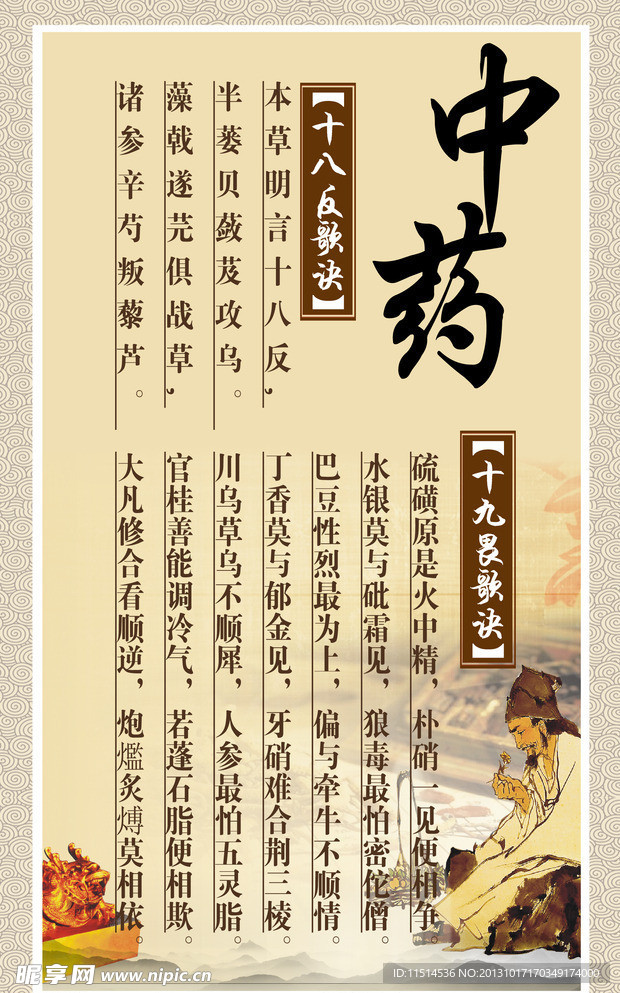 中药
【十八反歌诀】
本草明言十八反，
半蒌贝蔹芨攻乌。
藻戟遂芫俱战草，
诸参辛芍叛藜芦。
【十九畏歌诀】
硫磺原是火中精，朴硝一见便相争。
水银莫与砒霜见，狼毒最怕密佗僧。
巴豆性烈最为上，偏与牵牛不顺情。
丁香莫与郁金见，牙硝难合荆三棱。
川乌草乌不顺犀，人参最怕五灵脂。
官桂善能调冷气，若蓬石脂便相欺。
大凡修合看顺逆，炮爁炙煿莫相依。
昵享网 www.nipic.cn
ID:11514536 NO:20131017170349174000